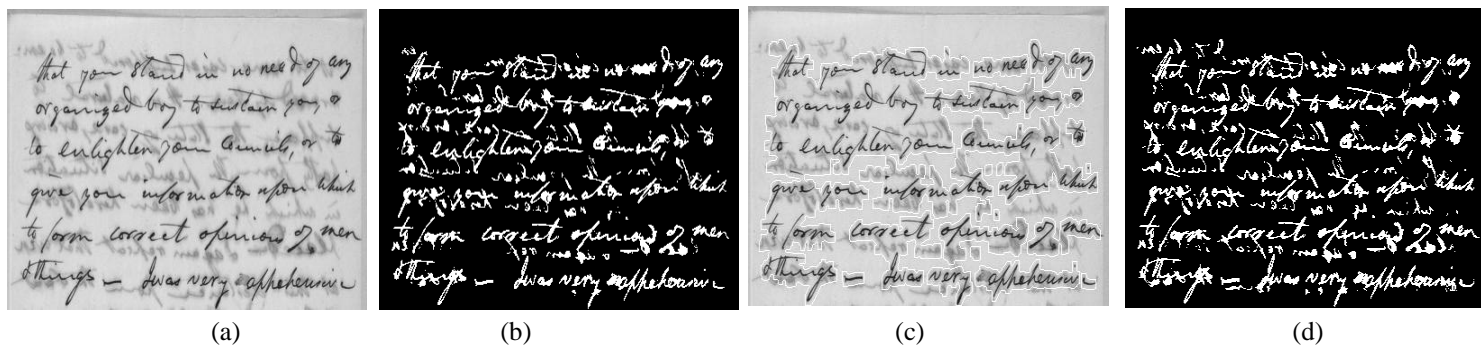 that you stand in no need of any
organized boy to sustain you, or
to enlighten your Councils, or to
give you information upon which
to form correct opinions of men
& things — I was very apprehensive
(a)
that you stand in no need of any
organized boy to sustain you, or
to enlighten your Councils, or to
give you information upon which
to form correct opinions of men
& things — I was very apprehensive
(b)
that you stand in no need of any
organized boy to sustain you, or
to enlighten your Councils, or to
give you information upon which
to form correct opinions of men
& things — I was very apprehensive
(c)
that you stand in no need of any
organized boy to sustain you, or
to enlighten your Councils, or to
give you information upon which
to form correct opinions of men
& things — I was very apprehensive
(d)